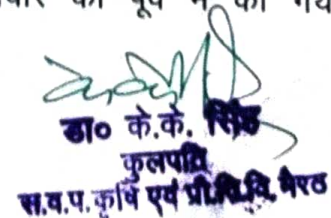 की पूर्व में की
डा० के.के. सिंह
कुलपति
स.व.प. कृषि एवं प्रौ.वि.वि. मेरठ